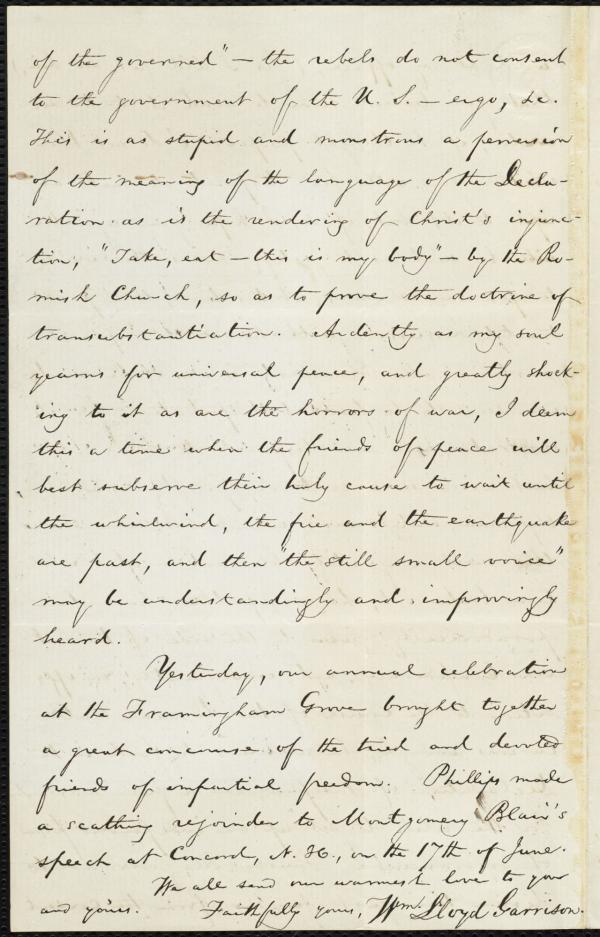 of the governed" — the rebels do not consent
to the government of the U. S. — ergo, &c.
This is as stupid and monstrous a perversion
of the meaning of the language of the Decla-
ration as is the rendering of Christ's injunc-
tion, "Take, eat — this is my body" — by the Ro-
mish Church, so as to prove the doctrine of
transubstantiation. Ardently as my soul
yearns for universal peace, and greatly shock-
ing to it as are the horrors of war, I deem
this a time when the friends of peace will
best subserve their holy cause to wait until
the whirlwind, the fire and the earthquake
are past, and then "the still small voice"
may be understandingly and improvingly
heard.
Yesterday, our annual celebration
at the Framingham Grove brought together
a great concourse of the tried and devoted
friends of impartial freedom. Phillips made
a scathing rejoinder to Montgomery Blair's
speech at Concord, N. H., on the 17th of June.
We all send our warmest love to you
and yours. Faithfully yours, Wm. Lloyd Garrison.